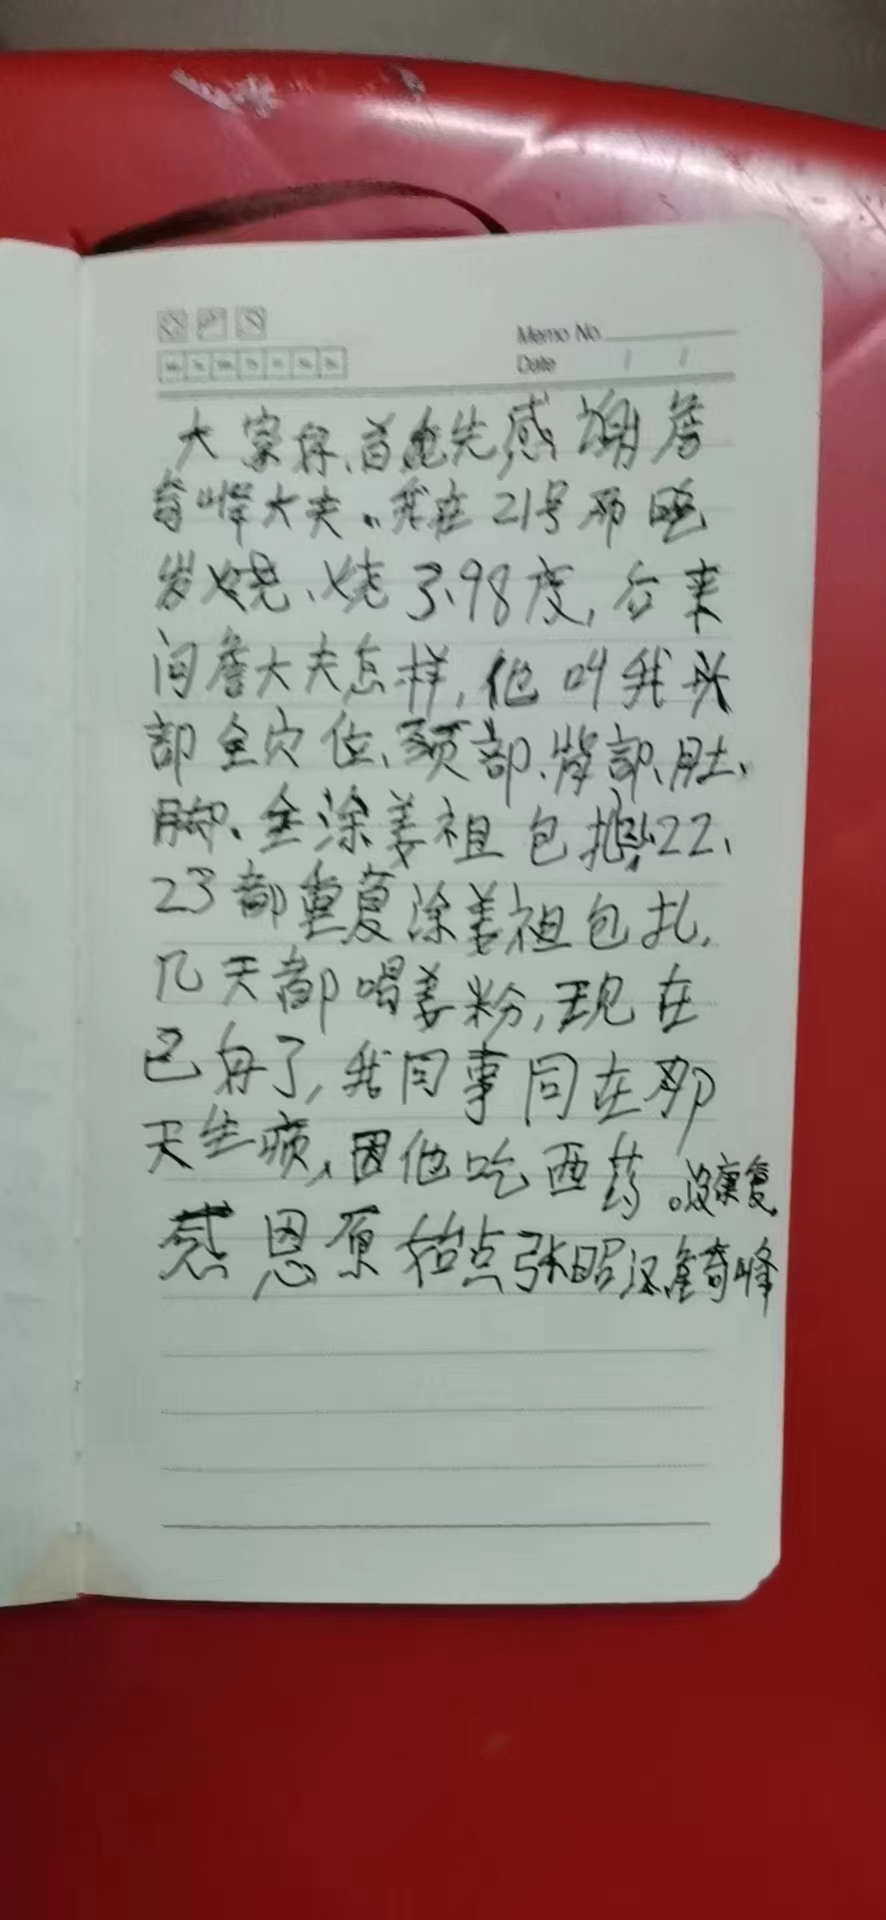 Memo No.
Date / /
大家好、首先感谢詹
奇峰大夫。我在21号那晚
发烧、烧了、98度,后来
问詹大夫怎样,他叫我头
部全穴位、颈部、背部、肚、
脚、全涂姜祖包扎22、
23都重复涂姜祖包扎,
几天都喝姜粉,现在
已好了,我同事同在那
天生病、因他吃西药。没康复
感恩原始点张昭汉詹奇峰